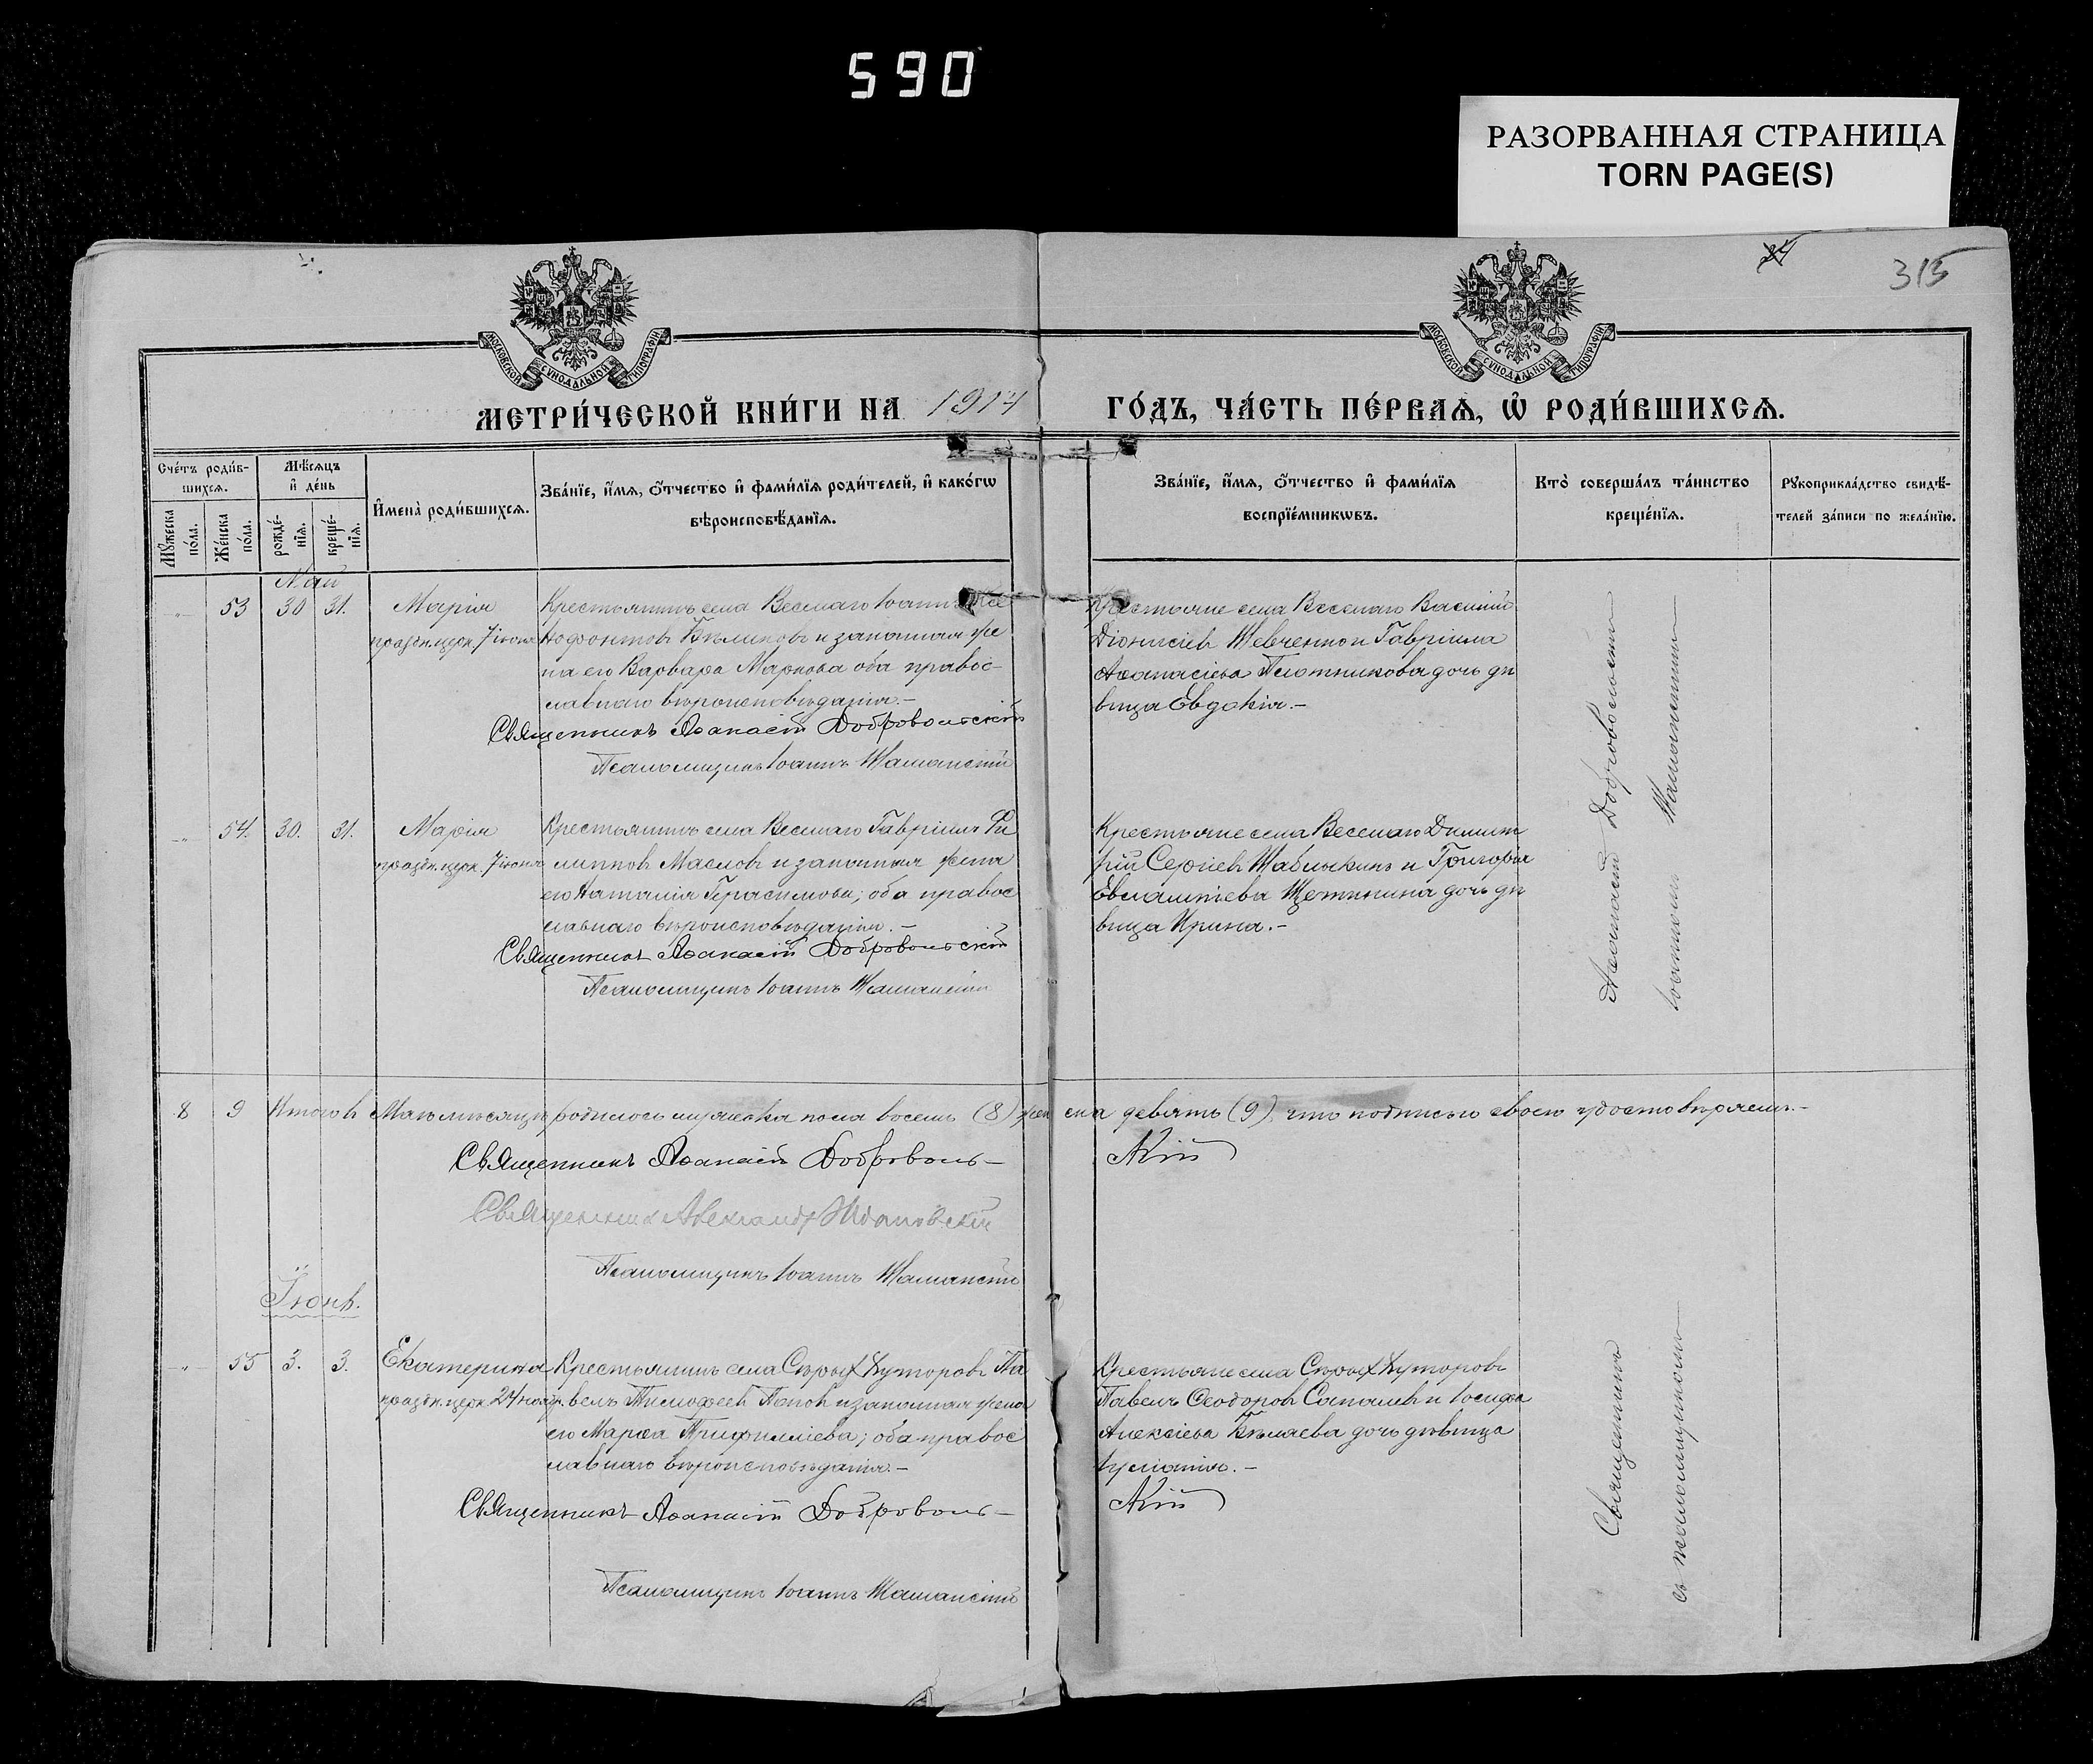 590
РАЗОРВАННАЯ СТРАНИЦА
TORN PAGE(S)
315
МОСКОВСКОЙ СѴНОДАЛЬНОЙ ТИПОГРАФІИ
МОСКОВСКОЙ СѴНОДАЛЬНОЙ ТИПОГРАФІИ
МЕТРИ́ЧЕСКОЙ КНИ́ГИ НА 1914 ГО́ДЪ, ЧА́СТЬ ПЕ́РВАѦ, Ѡ҆ РОДИ́ВШИХСѦ.
Сче́тъ роди́вшихсѧ.
Мѣ́сѧцъ и҆ де́нь
Мꙋ́жеска по́ла.
Же́нска по́ла.
рожде́нїѧ.
креще́нїѧ.
И҆мена̀ роди́вшихсѧ.
Зва́нїе, и҆́мѧ, ѻ҆́тчество и҆ фами́лїѧ роди́телей, и҆ како́гѡ
вѣроисповѣ́данїѧ.
Зва́нїе, и҆́мѧ, ѻ҆́тчество и҆ фами́лїѧ
воспрїе́мникѡвъ.
Кто̀ соверша́лъ та́инство
креще́нїѧ.
Рꙋкоприкла́дство свидѣ́-
телей за́писи по жела́нїю.
Май
53 30 31. Марія
праздн. церк. 7 іюня
Крестьянинъ села Веселаго Іоаннъ Ксе
нофонтовъ Бѣликовъ и законная же
на его Варвара Маркова оба правос-
лавнаго вѣроисповѣданія.-
Священникъ Аѳанасій Добровольскій
Псаломщикъ Іоаннъ Шаманскій
Крестьяне села Веселаго Василій
Діонисіевъ Шевченко и Гавріила
Аѳанасіева Плотникова дочь дѣ
вица Евдокія.-
54. 30. 31. Марія
праздн. церк. 7 іюня
Крестьянинъ села Веселаго Гавріилъ Фи
липповъ Масловъ и законная жена
его Наталія Герасимова; оба правос
лавнаго вѣроисповѣданія.-
Священникъ Аѳанасій Добровольскій
Псаломщикъ Іоаннъ Шаманскій
Крестьяне села Веселаго Димит
рій Сергіевъ Шаблыкинъ и Григорія
Евлампіева Щетинина дочь дѣ
вица Ирина.-
Аѳанасій Добровольскій
Іоанномъ Шаманскимъ
8 9 Итого въ Маѣ мѣсяцѣ родилось мужеска пола восемь (8) женска девять (9), что подписью своею удостовѣряемъ.-
Священникъ Аѳанасій Доброволь-
скій
Священник Александр Ждановскій
Псаломщикъ Іоаннъ Шаманскій
Іюнь.
55 3. 3. Екатерина
праздн. церк. 24 нояб.
Крестьянинъ села Сѣрыхъ Хуторовъ Па
велъ Тимофеевъ Поповъ и законная жена
его Марѳа Трифилліева; оба правос
лавнаго вѣроисповѣданія.-
Священникъ Аѳанасій Доброволь-
скій
Псаломщикъ Іоаннъ Шаманскій
Крестьяне села Сѣрыхъ Хуторовъ
Павелъ Ѳеодоровъ и Іосифа
Алексіева Бѣляева дочь дѣвица
Іуліанія.-
Священникъ
съ псаломщикомъ